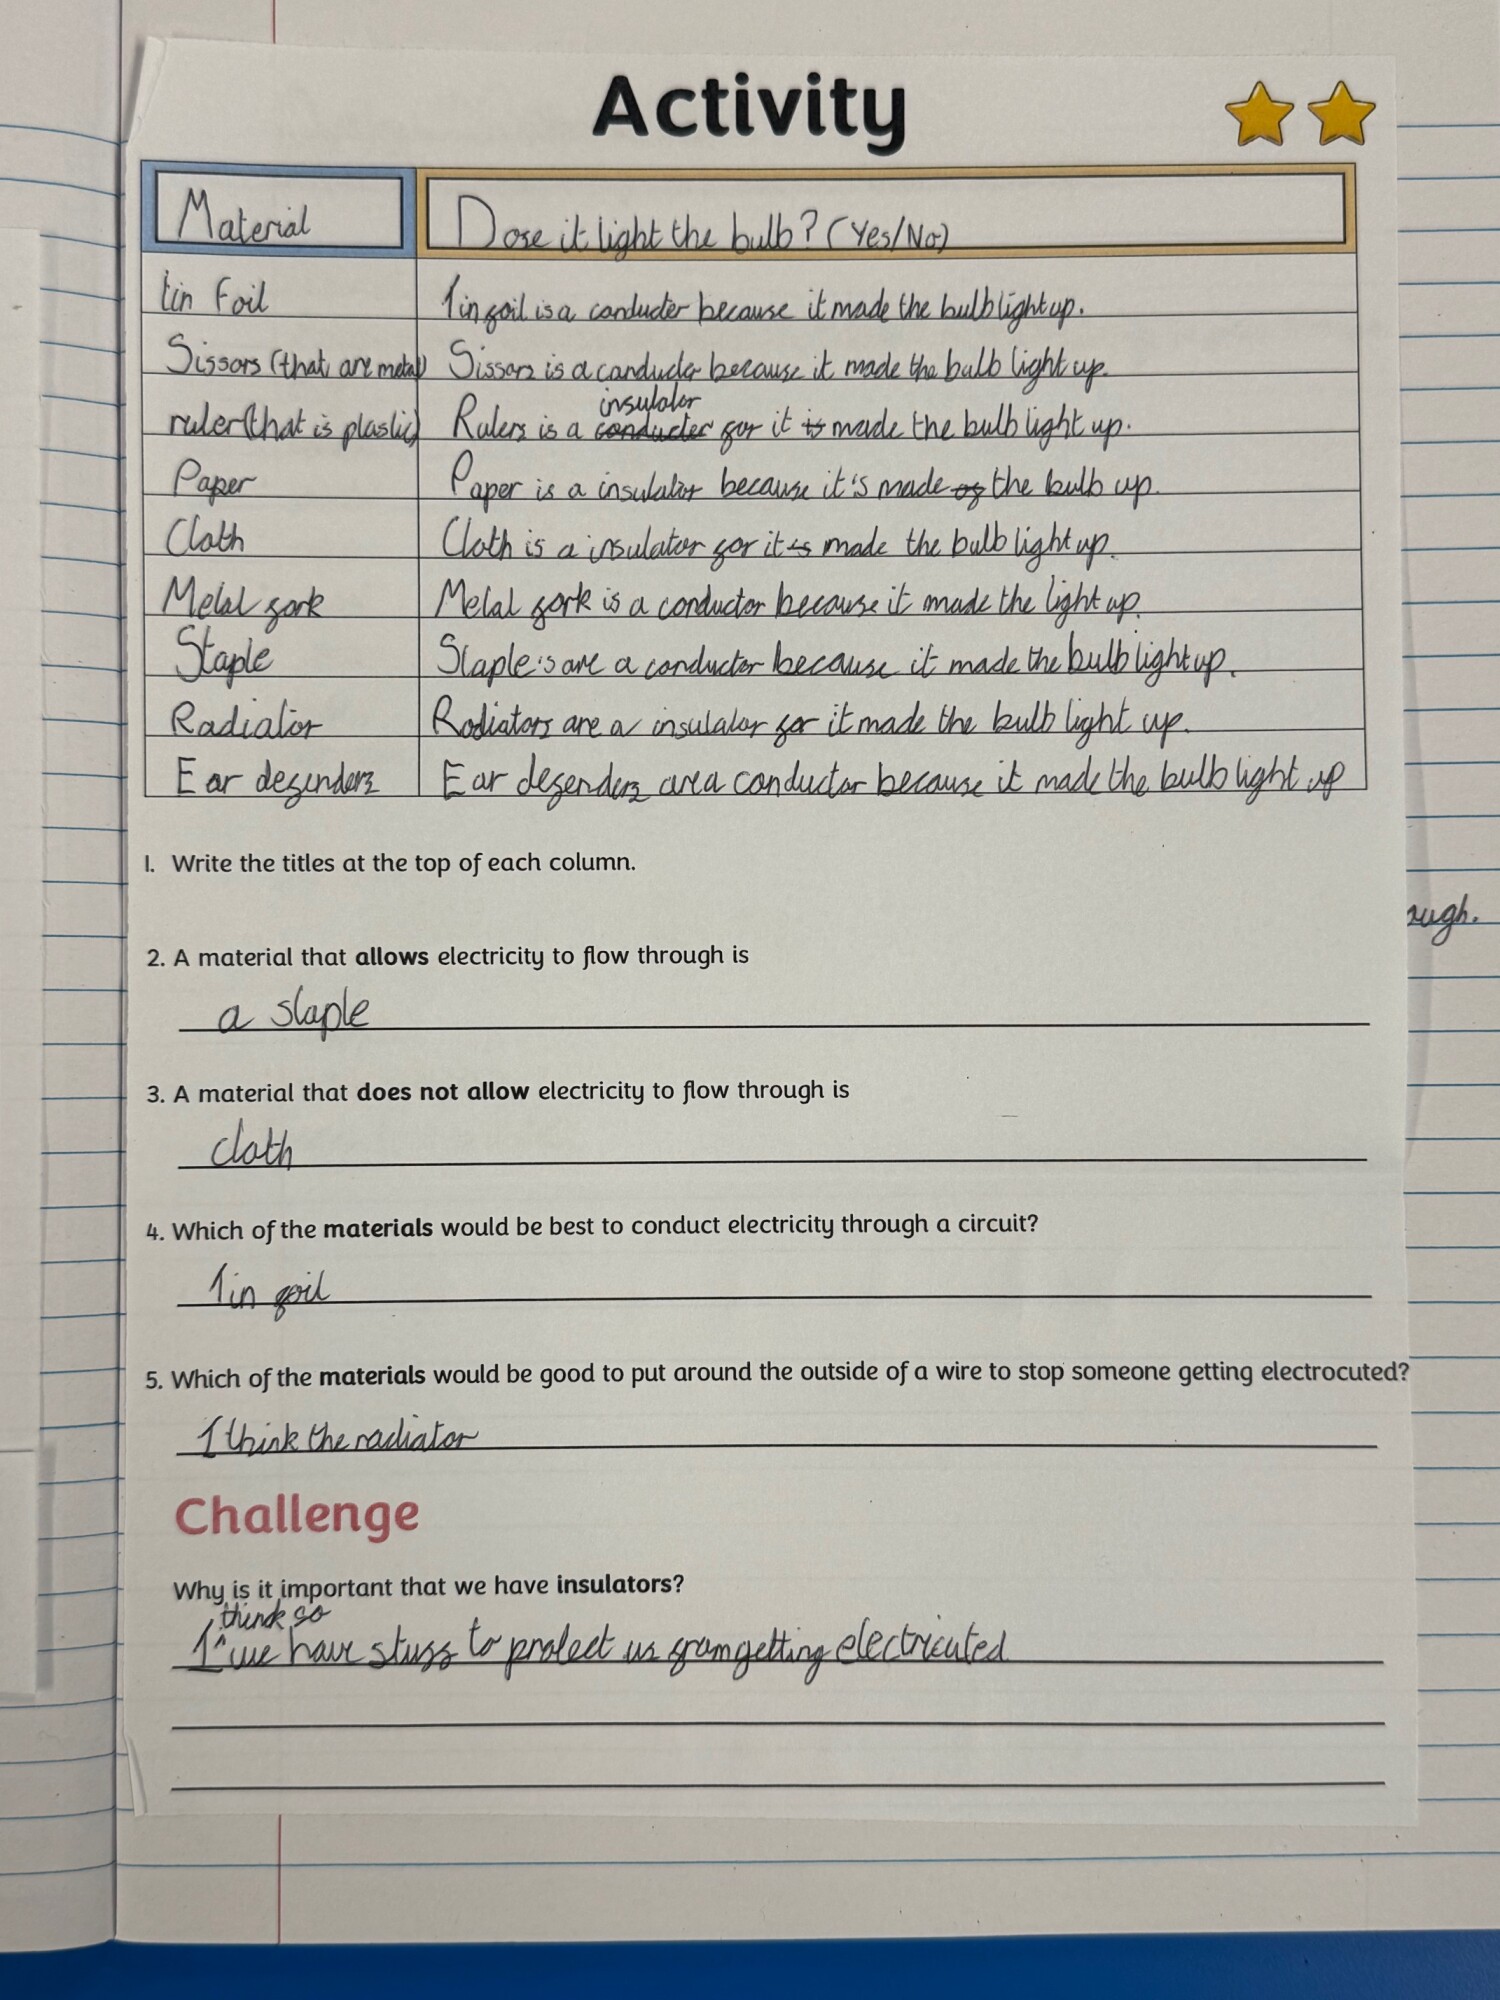 Activity
Material
Dose it light the bulb? (Yes/No)
tin foil
Tin foil is a conducter because it made the bulb light up.
Sissors (that are metal)
Sissors is a conducter because it made the bulb light up.
ruler (that is plastic)
insulator
Rulers is a conducter for it is made the bulb light up.
Paper
Paper is a insulator because it's made of the bulb up.
Cloth
Cloth is a insulator for it is made the bulb light up.
Metal fork
Metal fork is a conductor because it made the light up.
Staple
Staple's are a conductor because it made the bulb light up.
Radiator
Radiators are a insulator for it made the bulb light up.
Ear defenders
Ear defenders are a conductor because it made the bulb light up
1. Write the titles at the top of each column.
2. A material that allows electricity to flow through is
a staple
3. A material that does not allow electricity to flow through is
cloth
4. Which of the materials would be best to conduct electricity through a circuit?
Tin foil
5. Which of the materials would be good to put around the outside of a wire to stop someone getting electrocuted?
I think the radiator
Challenge
Why is it important that we have insulators?
think so
I ^ we have stuff to protect us from getting electricuted